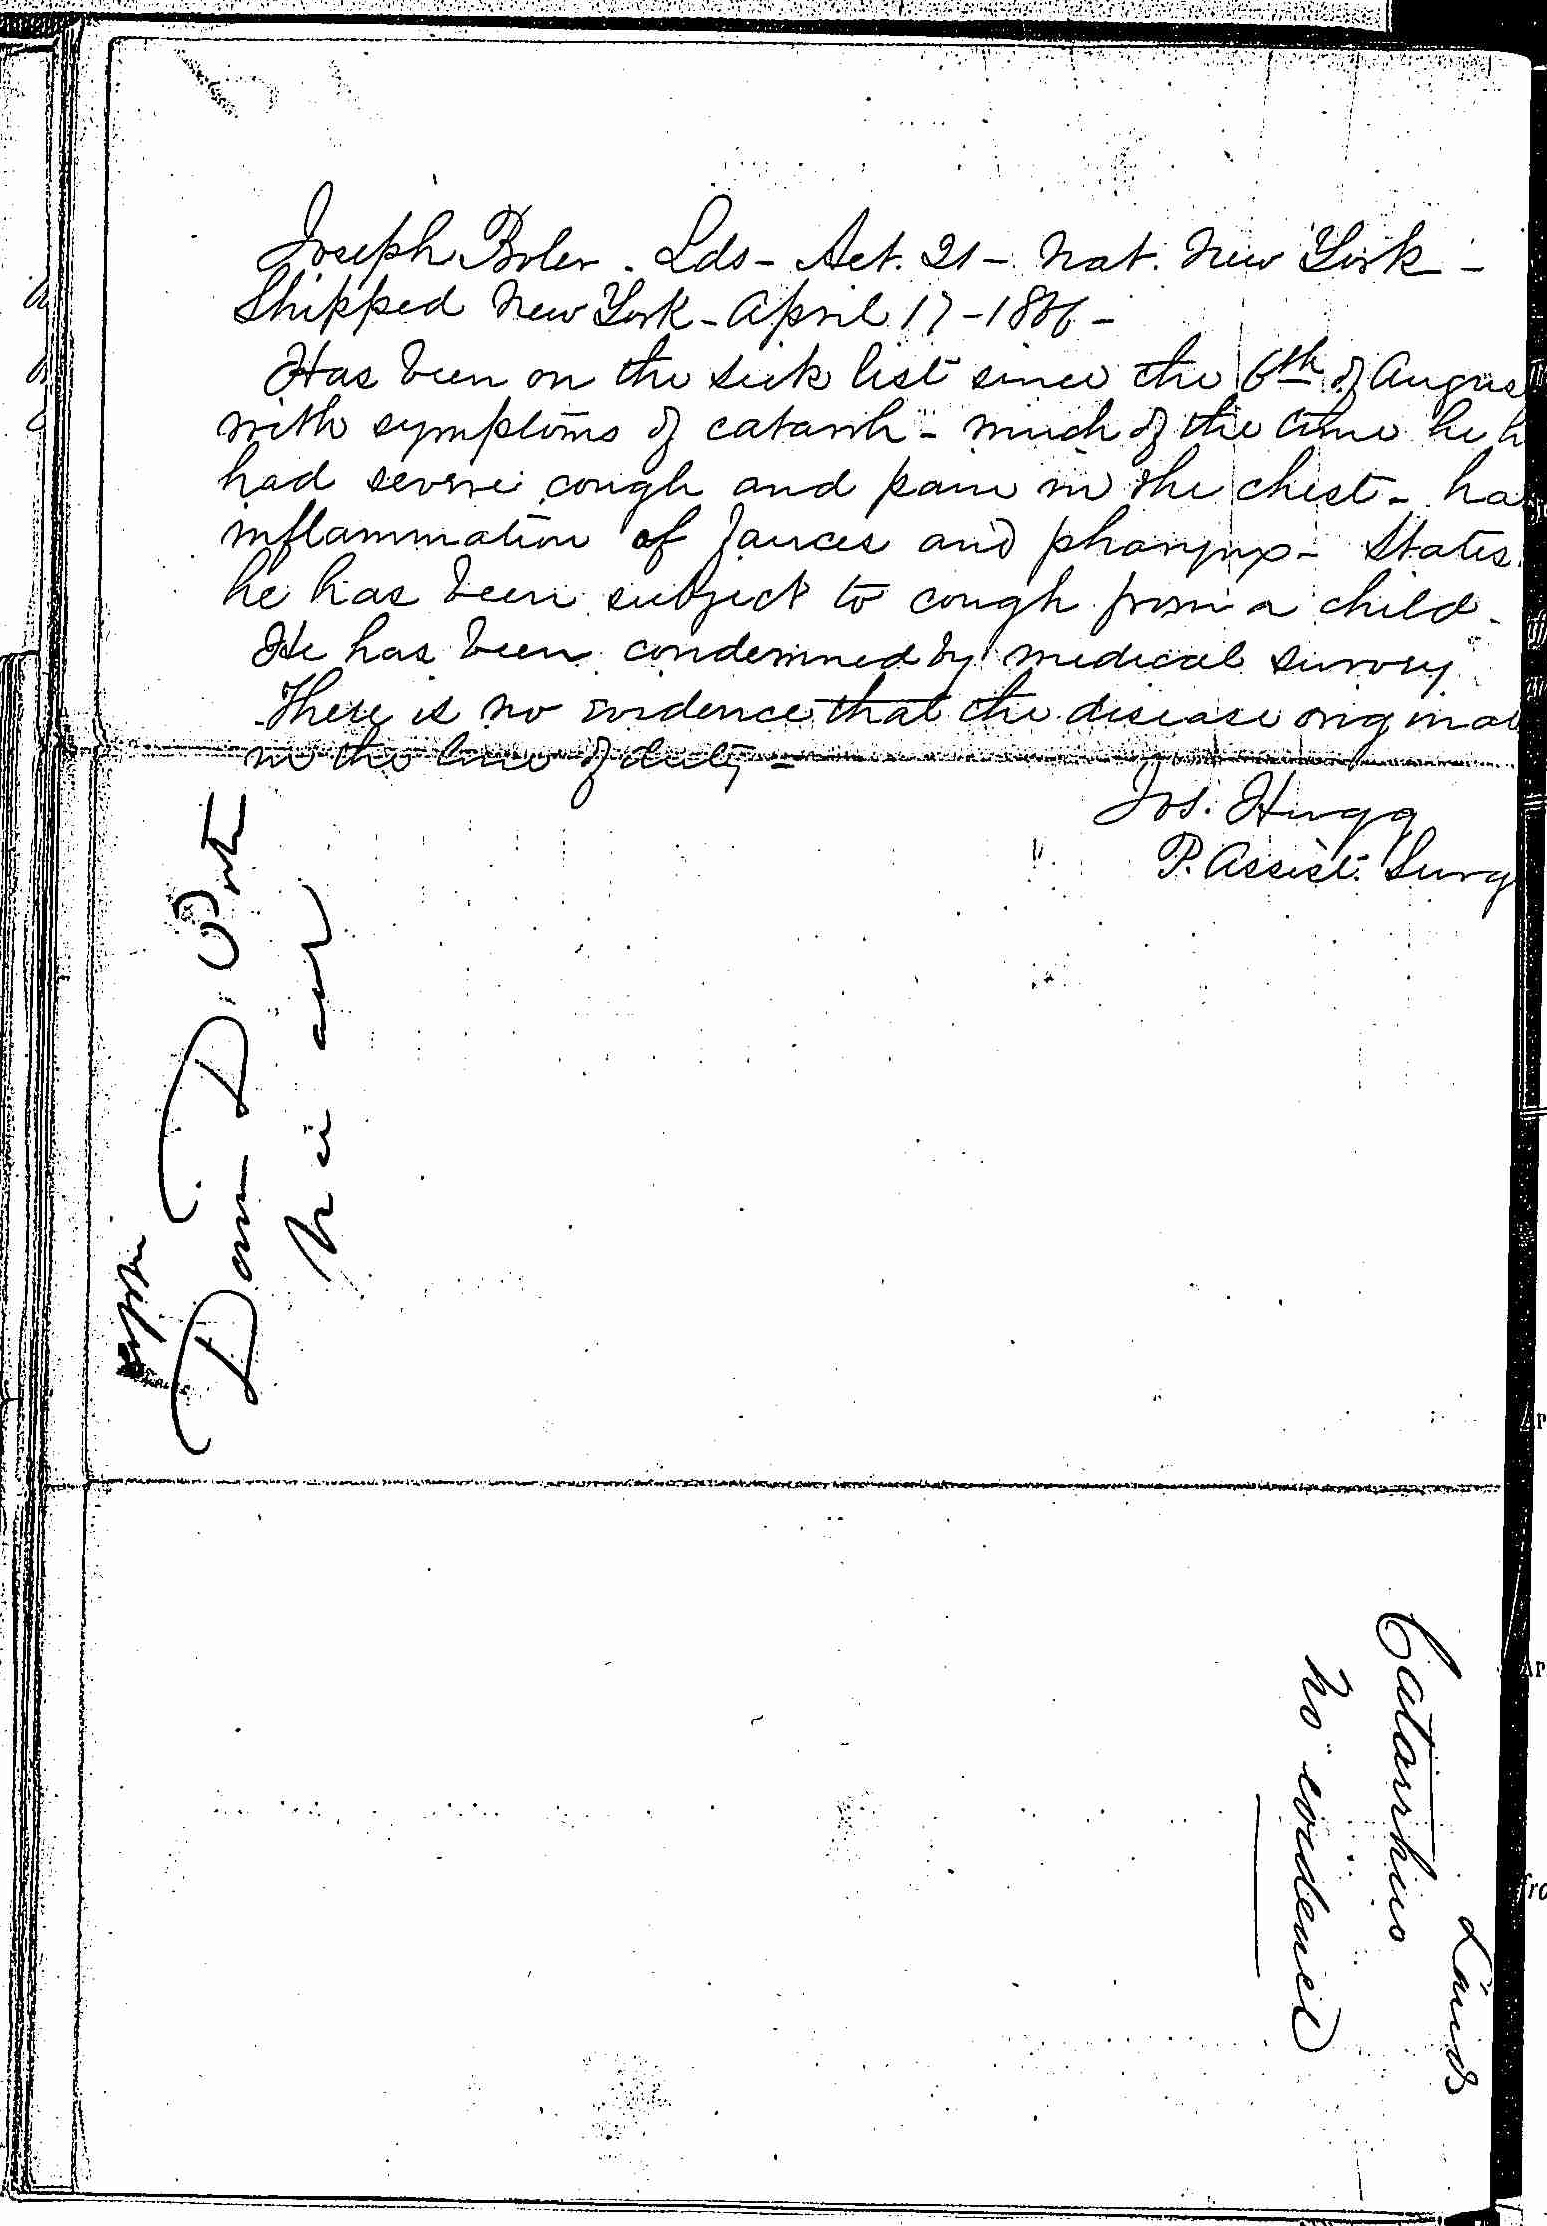 Joseph Boler - Lds - Aet. 21 - Nat. New York -
Shipped New York - April 17 - 1886 -
Has been on the sick list since the 6th of Augus
with symptoms of catarrh - much of the time he h
had severe cough and pain in the chest - ha
inflammation of fauces and pharynx - States
he has been subject to cough from a child -
He has been condemned by medical survey
There is no evidence that the disease originat
in the line of duty -
Jos. Hugg
P. Assist. Surg
Lands
Catarrhus
No evidence